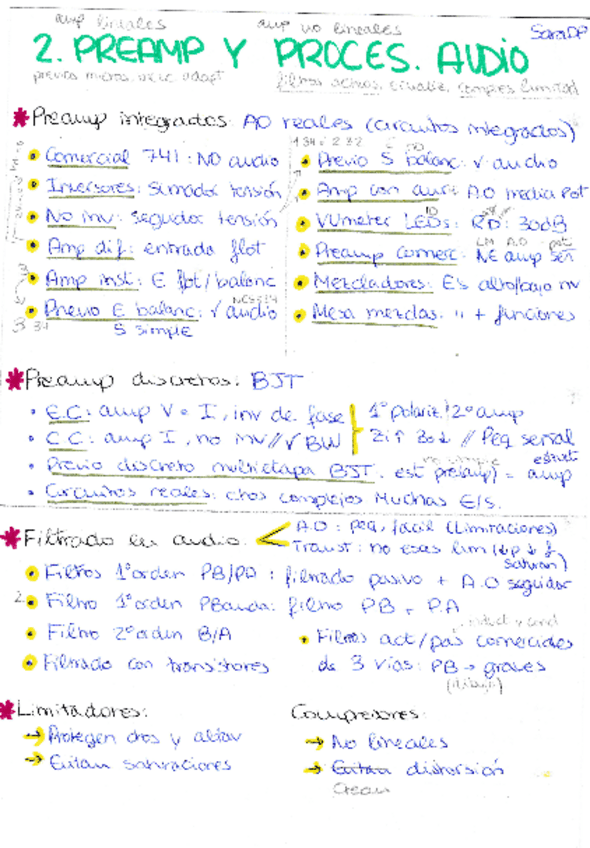 amp lineales amp no lineales SaraDP
2. PREAMP Y PROCES. AUDIO
previos micros. adapt filtros activos, ecualiz, compres limitad
* Preamp integrados: AO reales (circuitos integrados)
• Comercial 741: NO audio
• Inversores: sumador tensión
• No inv: seguidor tensión
• Amp dif: entrada flot
• Amp inst: E flot/balanc
• Previo E balanc: √ audio
S simple
• Previo S balanc: √ audio
• Amp con aur: A.O media Pot
• VUmeter LEDs: RD: 30dB
• Preamp comerc: NE amp señ
• Mezcladores: E's alto/bajo niv
• Mesa mezclas: " + funciones
* Preamp discretos: BJT
• E.C: amp V e I, inv de fase
• C.C: amp I, no inv // √ BW
1º polariz/2º amp
Zi↑ Zo↓ // Peq señal
• Previo discreto multietapa BJT. est preamp = estruct amp
• Circuitos reales: ctos complejos Muchas E/S.
* Filtrado en audio:
A.O: peq, fácil (Limitaciones)
Transist: no esas lim
• Filtros 1º orden PB/PA: filtrado pasivo + A.O seguidor
2. • Filtro 1º orden PBanda: filtro PB + P.A
• Filtro 2º orden B/A
• Filtrado con transistores
• Filtros act/pas comerciales
de 3 vías: PB → graves
(dibujo)
* Limitadores:
→ Protegen ctos y altav
→ Evitan saturaciones
Compresores:
→ No lineales
→ Evitan distorsión
Crean